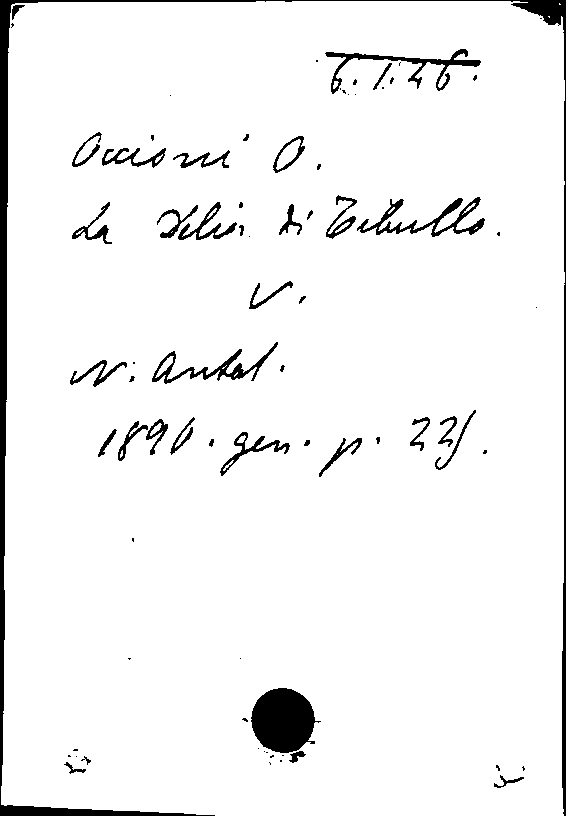 6.1.46.
Occioni O.
La Delia di Tibullo.
V.
N. Antol.
1890. gen. p. 225.